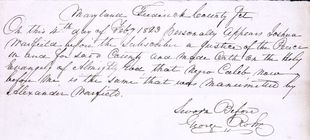 Maryland Frederick County Sct
On this 4th day of Feby 1823 Personally appears Joshua
Warfield before the Subscriber a Justice of the Peace
in and for said County and Made Oath on the Holy
Evangely of Almighty God that Negro Caleb Now
before Mee is the same that was Manumitted by
Alexander Warfield
Sworn Before
George